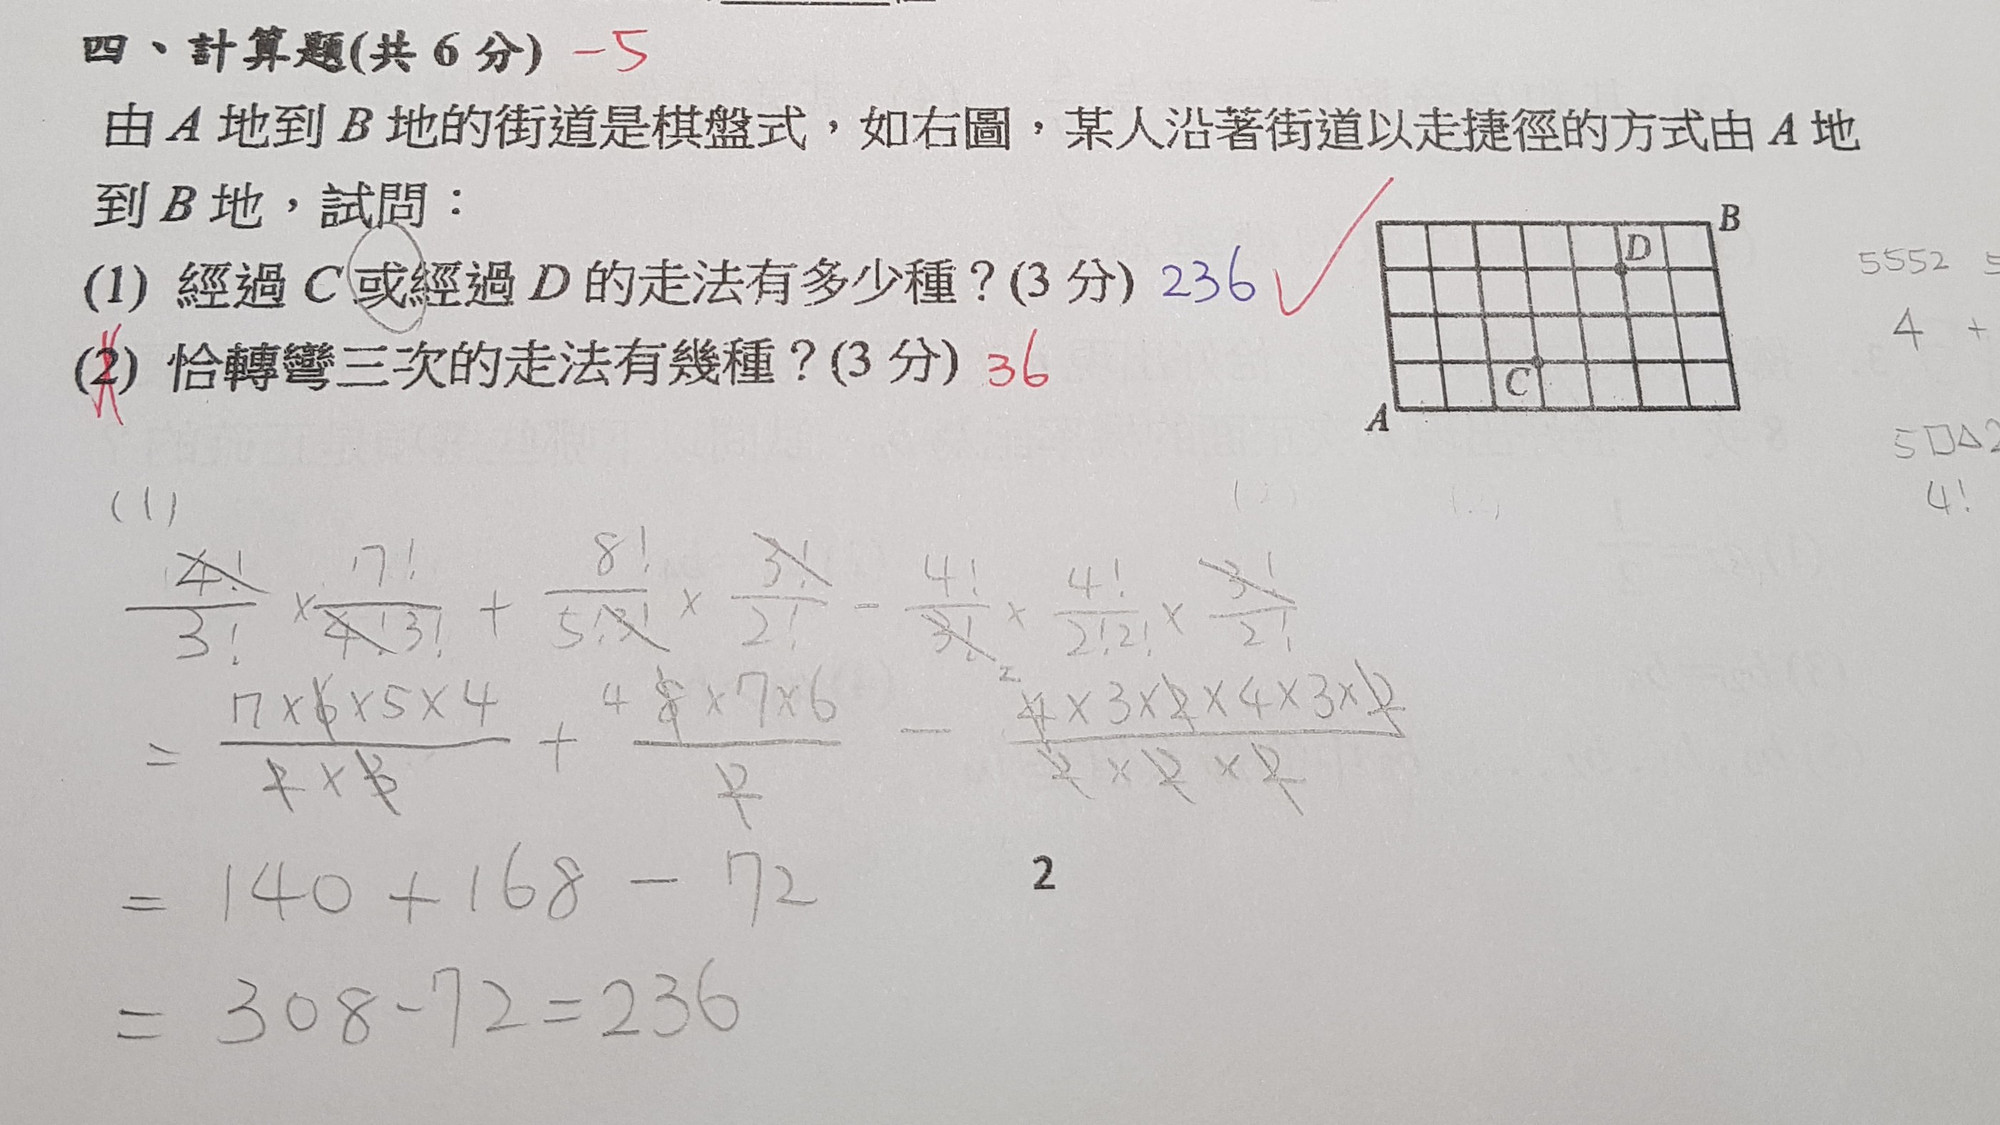 四、計算題(共 6 分) -5
由 A 地到 B 地的街道是棋盤式，如右圖，某人沿著街道以走捷徑的方式由 A 地
到 B 地，試問：
(1) 經過 C 或經過 D 的走法有多少種？(3 分) 236
(2) 恰轉彎三次的走法有幾種？(3 分) 36
B
D
C
A
5552 5
4 +
5□△2
4!
(1)
4!/3! × 7!/4!3! + 8!/5!3! × 3!/2! - 4!/3! × 4!/2!2! × 3!/2!
= 7×6×5×4/ + 4 8×7×6/2 - 2 4×3×2×4×3×2/2×2×2
= 140 + 168 - 72
= 308-72=236
2